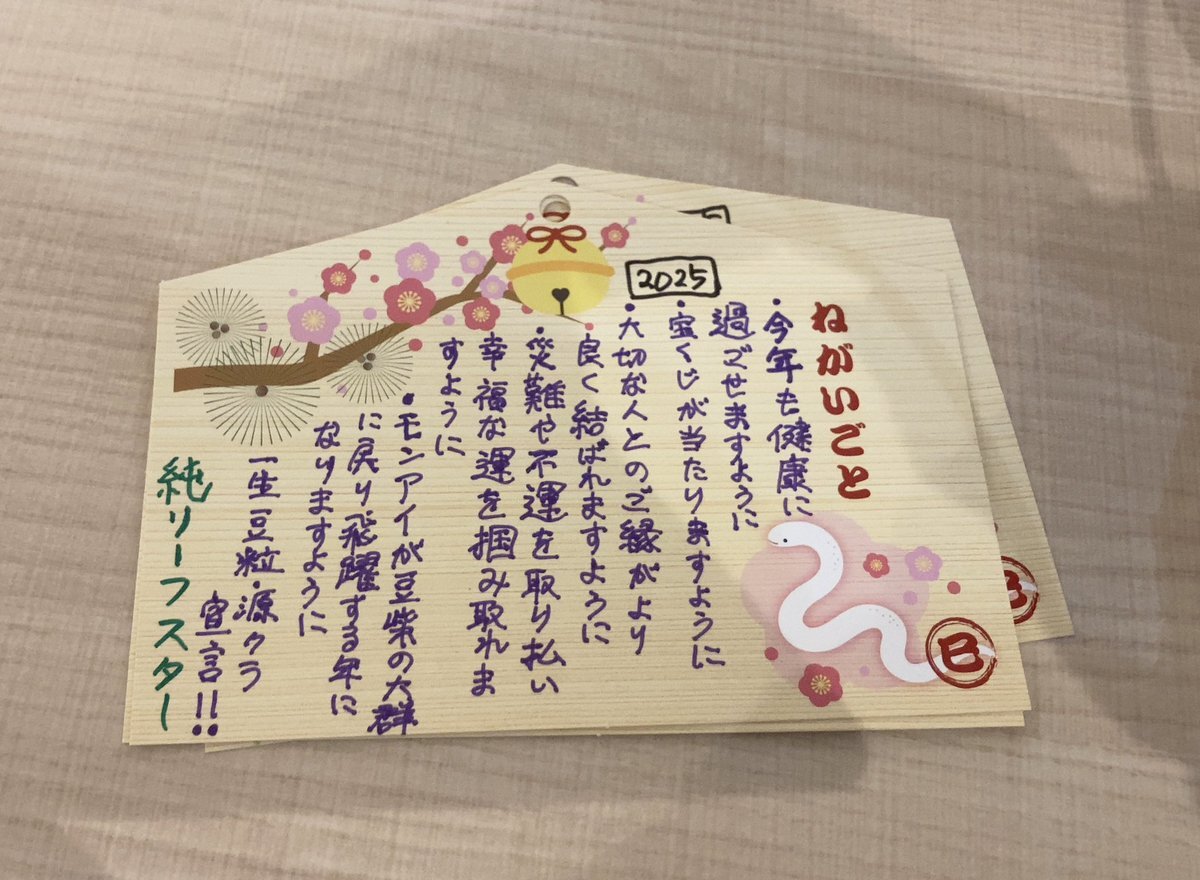 2025
ねがいごと
・今年も健康に
過ごせますように
・宝くじが当たりますように
・大切な人とのご縁がより
良く結ばれますように
・災難や不運を取り払い
幸福な運を掴み取れま
すように
・モンアイが豆柴の大群
に戻り飛躍する年に
なりますように
一生豆粒・源クラ
宣言!!
純リーフスター
巳